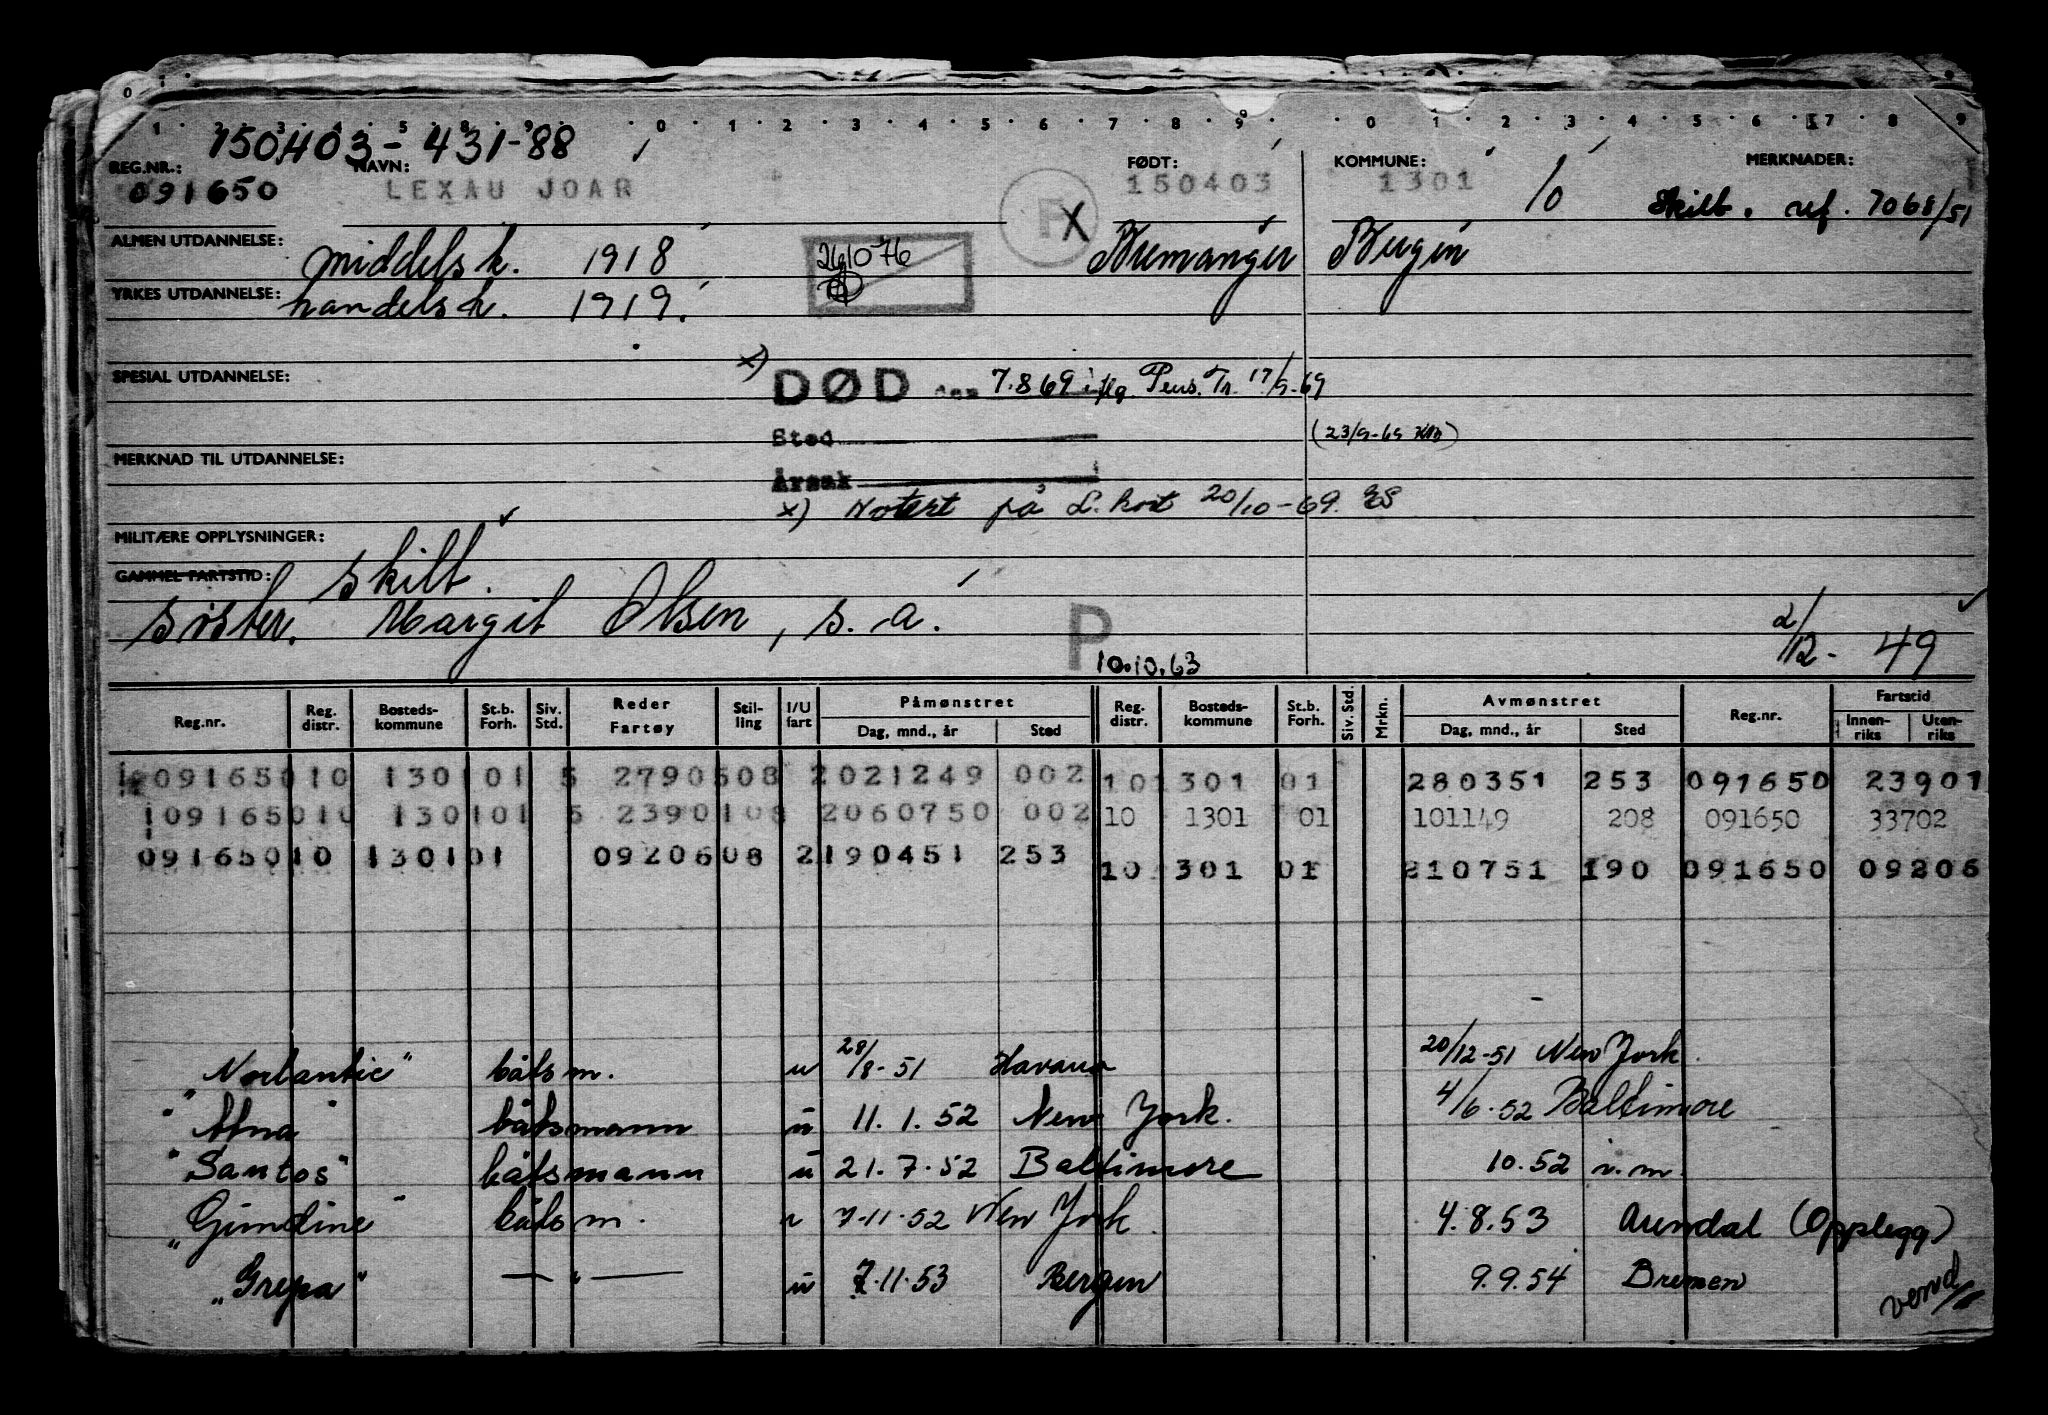 0 1
1 2 3 4 5 8 9 0 1 2 3 4 5 6 7 8 9 0 1 2 3 4 5 6 7 8 9
150403-431-88
REG.NR.: NAVN: FØDT: KOMMUNE: MERKNADER:
091650 LEXAU JOAR 150403 1301 10 Skilt. ref. 7068/51
ALMEN UTDANNELSE: middelsk. 1918 261076 F X Bremanger Bergen
YRKES UTDANNELSE: handelsk. 1919.
SPESIAL UTDANNELSE: x) DØD den 7.8 69 iflg. Pens. Tr. 17/9-69
Sted (23/9-69 KM)
MERKNAD TIL UTDANNELSE:
Årsak
x) Notert på L. kort 20/10-69. ES
MILITÆRE OPPLYSNINGER:
GAMMEL FARTSTID: skilt.
søster. Margit Olsen, s. a. P 2/12-49
10.10.63
Reg.nr. Reg. distr. Bosteds-kommune St.b. Forh. Siv. Std. Reder Fartøy Stil-ling I/U fart Påmønstret Dag, mnd., år Sted Reg. distr. Bosteds-kommune St.b. Forh. Siv. Std. Mrkn. Avmønstret Dag, mnd., år Sted Reg.nr. Fartstid Innen-riks Uten-riks
091650 10 1301 01 5 27905 08 2 021249 002 10 1301 01 280351 253 091650 23901
091650 10 1301 01 5 23901 08 2 060750 002 10 1301 01 101149 208 091650 33702
091650 10 1301 01 09206 08 2 190451 253 10 301 01 210751 190 091650 09206
"Norlantic" båtsm. u 28/8-51 Havana 20/12-51 New York.
"Atna" båtsmann u 11.1.52 New York. 4/6.52 Baltimore
"Santos" båtsmann u 21.7.52 Baltimore 10.52 n.m.
"Gundine" båtsm. u 7.11.52 New York. 4.8.53 Arendal (Opplegg)
"Grepa" — " — u 7.11.53 Bergen 9.9.54 Bremen
vend